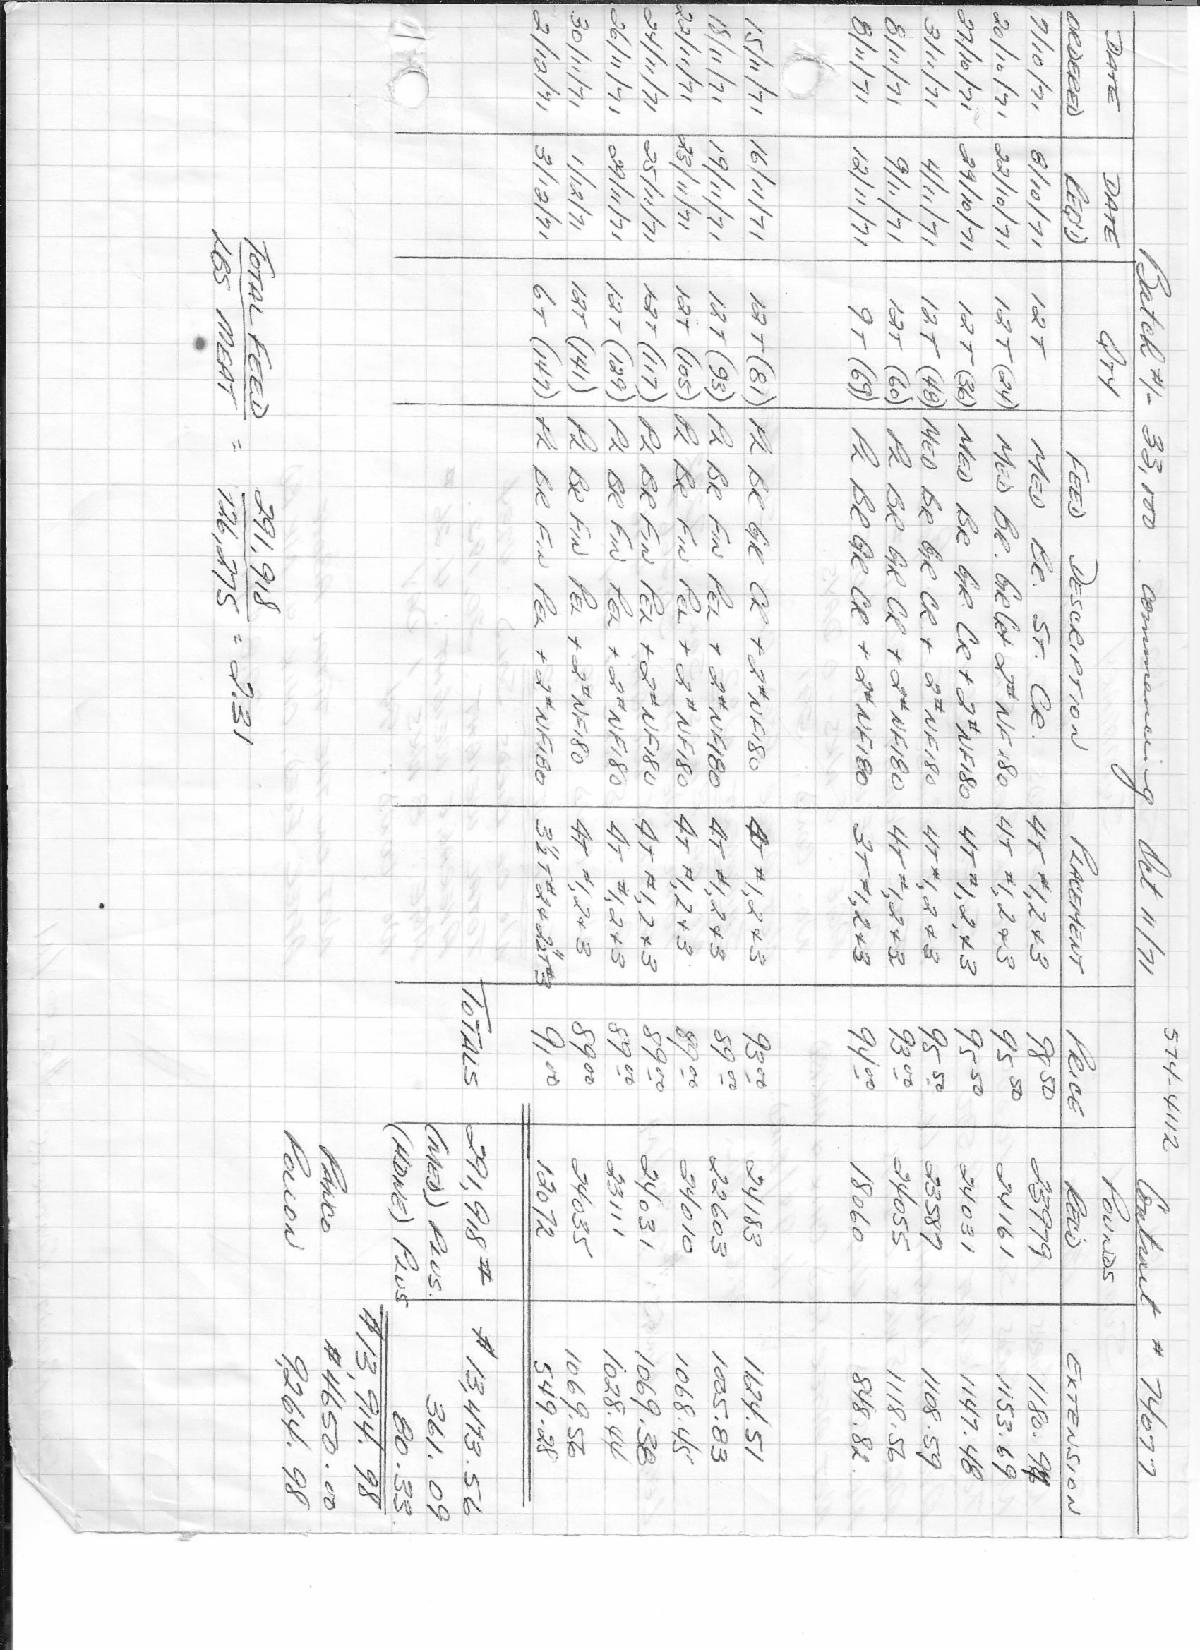 Batch #1 - 33,100 commencing Oct 11/71 574-4112 Contract # 74077
DATE ORDERED DATE REQ'D QTY FEED DESCRIPTION PLACEMENT PRICE POUNDS REC'D EXTENSION
7/10/71 8/10/71 12T MED BR. ST. CR. 4T #1,2+3 98 50 23979 1180.94
20/10/71 22/10/71 12T (24) MED BR. GR CR + 2# NF180 4T #1,2+3 95 50 24161 1153.69
27/10/71 29/10/71 12T (36) MED BR GR CR + 2# NF180 4T #1,2,+3 95 50 24031 1147.48
3/11/71 4/11/71 12T (48) MED BR GR CR + 2# NF180 4T #1,2+3 95.50 23587 1108.59
8/11/71 9/11/71 12T (60) PL BR GR CR + 2# NF180 4T #1,2+3 93.00 24055 1118.56
8/11/71 12/11/71 9T (69) PL BR GR CR + 2# NF180 3T #1,2+3 94.00 18060 848.82
15/11/71 16/11/71 12T (81) PL BR GR CR + 2# NF180 4T #1,2+3 93.00 24183 1624.51
18/11/71 19/11/71 12T (93) PL BR FIN PEL + 2# NF180 4T #1,2+3 89.00 22603 1005.83
22/11/71 23/11/71 12T (105) PL BR FIN PEL + 2# NF180 4T #1,2+3 89.00 24010 1068.45
24/11/71 25/11/71 12T (117) PL BR FIN PEL + 2# NF180 4T #1,2+3 89.00 24031 1069.38
26/11/71 29/11/71 12T (129) PL BR FIN PEL + 2# NF180 4T #1,2+3 89.00 23111 1028.44
30/11/71 1/12/71 12T (141) PL BR FIN PEL + 2# NF180 4T #1,2+3 89.00 24035 1069.56
2/12/71 3/12/71 6T (147) PL BR FIN PEL + 2# NF180 3½T #2+2½T#3 91.00 12072 549.28
TOTALS 291,918 # $13,473.56
(MED) PLUS. 361.09
(HDNE) PLUS 80.33
$13,914.98
TOTAL FEED / LBS MEAT = 291,918 / 126,275 = 2.31
$4650.00
9,264.98